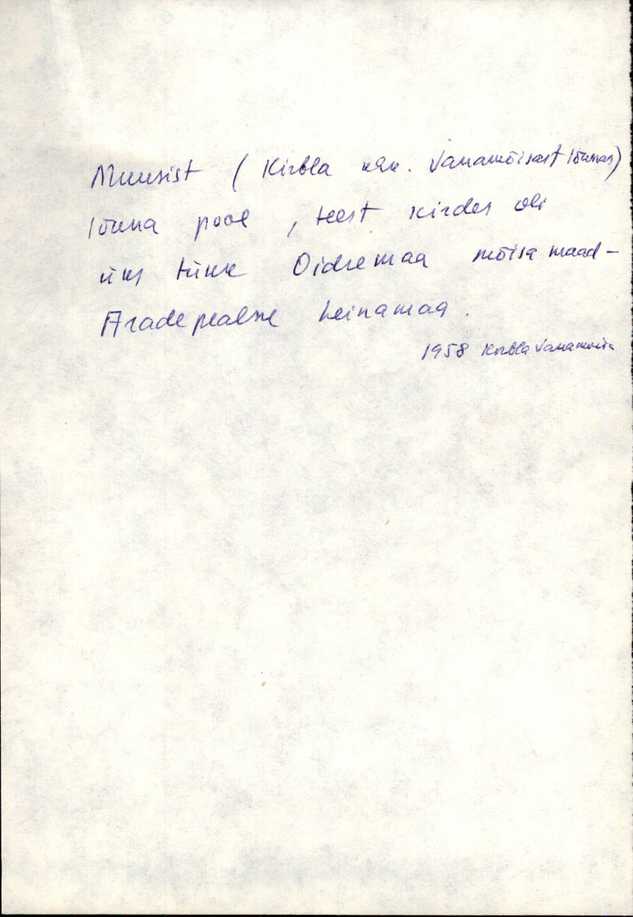 (Kirbla Vanamõisast lõunas)
lõuna pool, teest kirdes oli
üks tükk Oidremaa mõisa maad –
Aradepealne heinamaa.
1958 Kirbla Vanamõisa